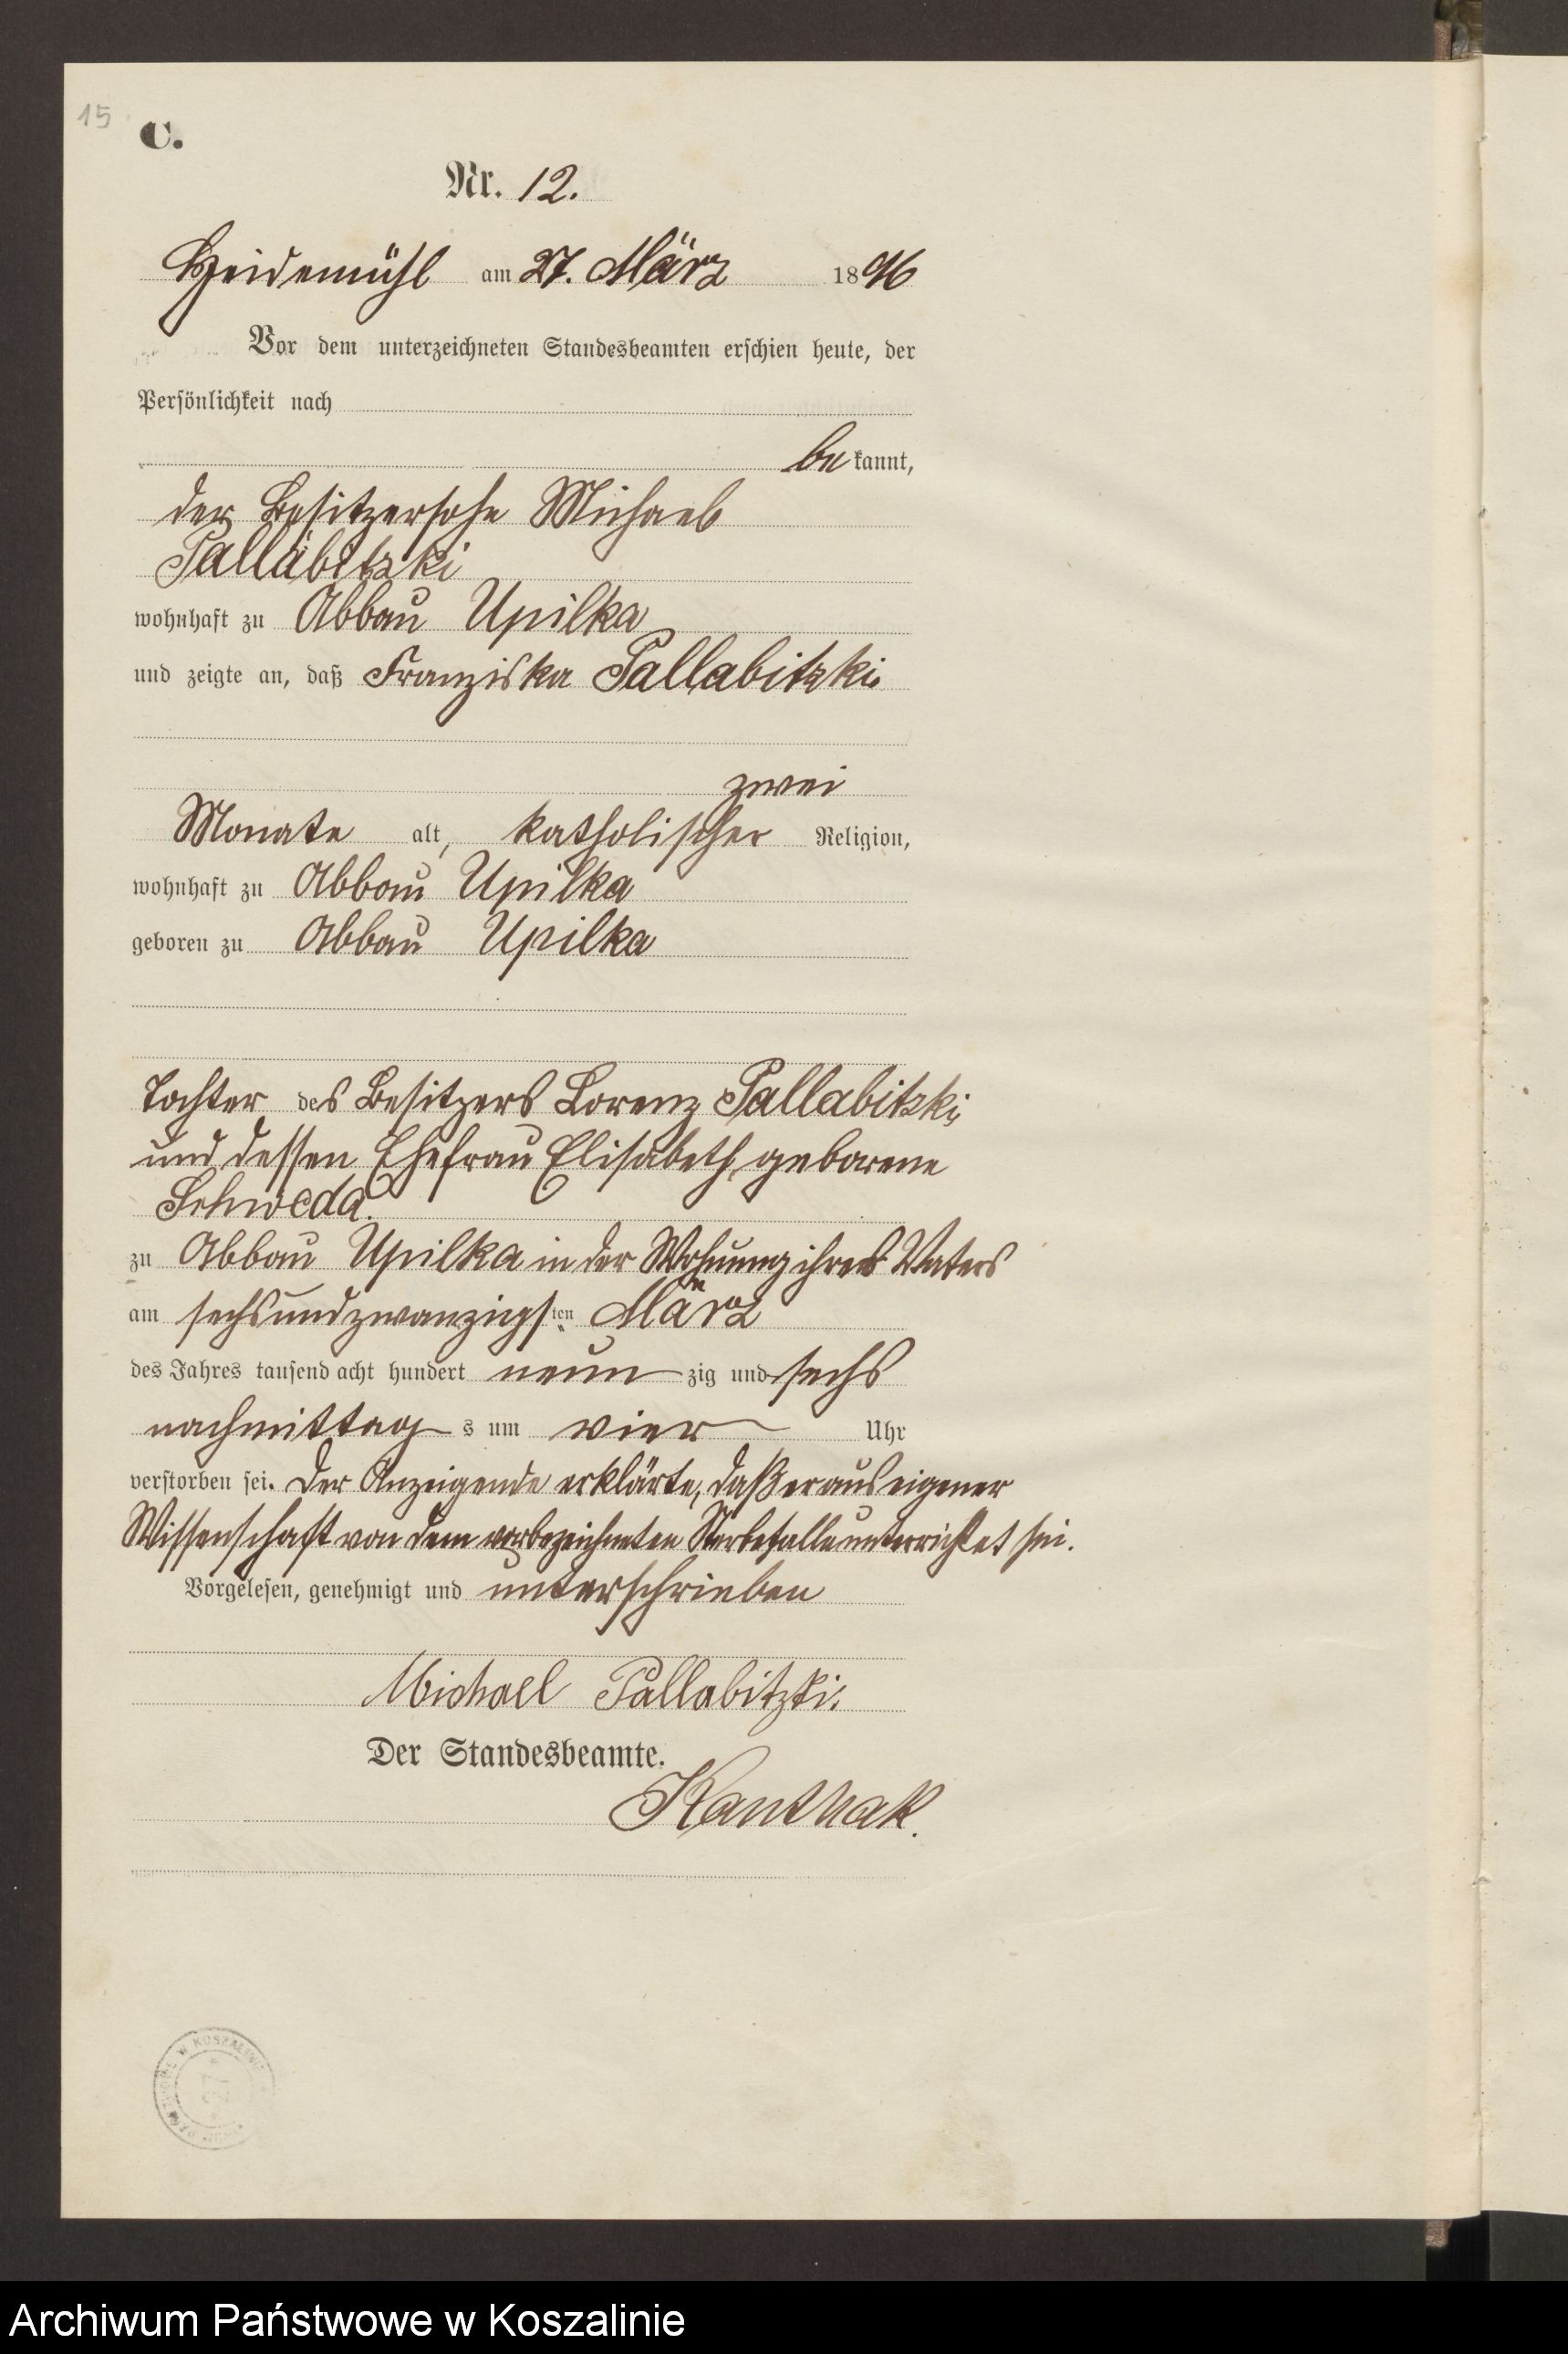 15
C.
Nr. 12.
Heidemühl am 27. März 1896
Vor dem unterzeichneten Standesbeamten erschien heute, der
Persönlichkeit nach
bekannt,
der Besitzersohn Michael
Pallabitzki
wohnhaft zu Abbau Upilka
und zeigte an, daß Franziska Pallabitzki
zwei
Monate alt, katholischer Religion,
wohnhaft zu Abbau Upilka
geboren zu Abbau Upilka
Tochter des Besitzers Lorenz Pallabitzki
und dessen Ehefrau Elisabeth geborene
Schweda.
zu Abbau Upilka in der Wohnung ihres Vaters
am sechsundzwanzigsten März
des Jahres tausend acht hundert neunzig und sechs
nachmittags um vier Uhr
verstorben sei. Der Anzeigende erklärte, daß er aus eigener
Wissenschaft von dem vorbezeichneten Sterbefalle unterrichtet sei.
Vorgelesen, genehmigt und unterschrieben
Michael Pallabitzki.
Der Standesbeamte.
Kanthak.
W KOSZALINIE
Archiwum Państwowe w Koszalinie